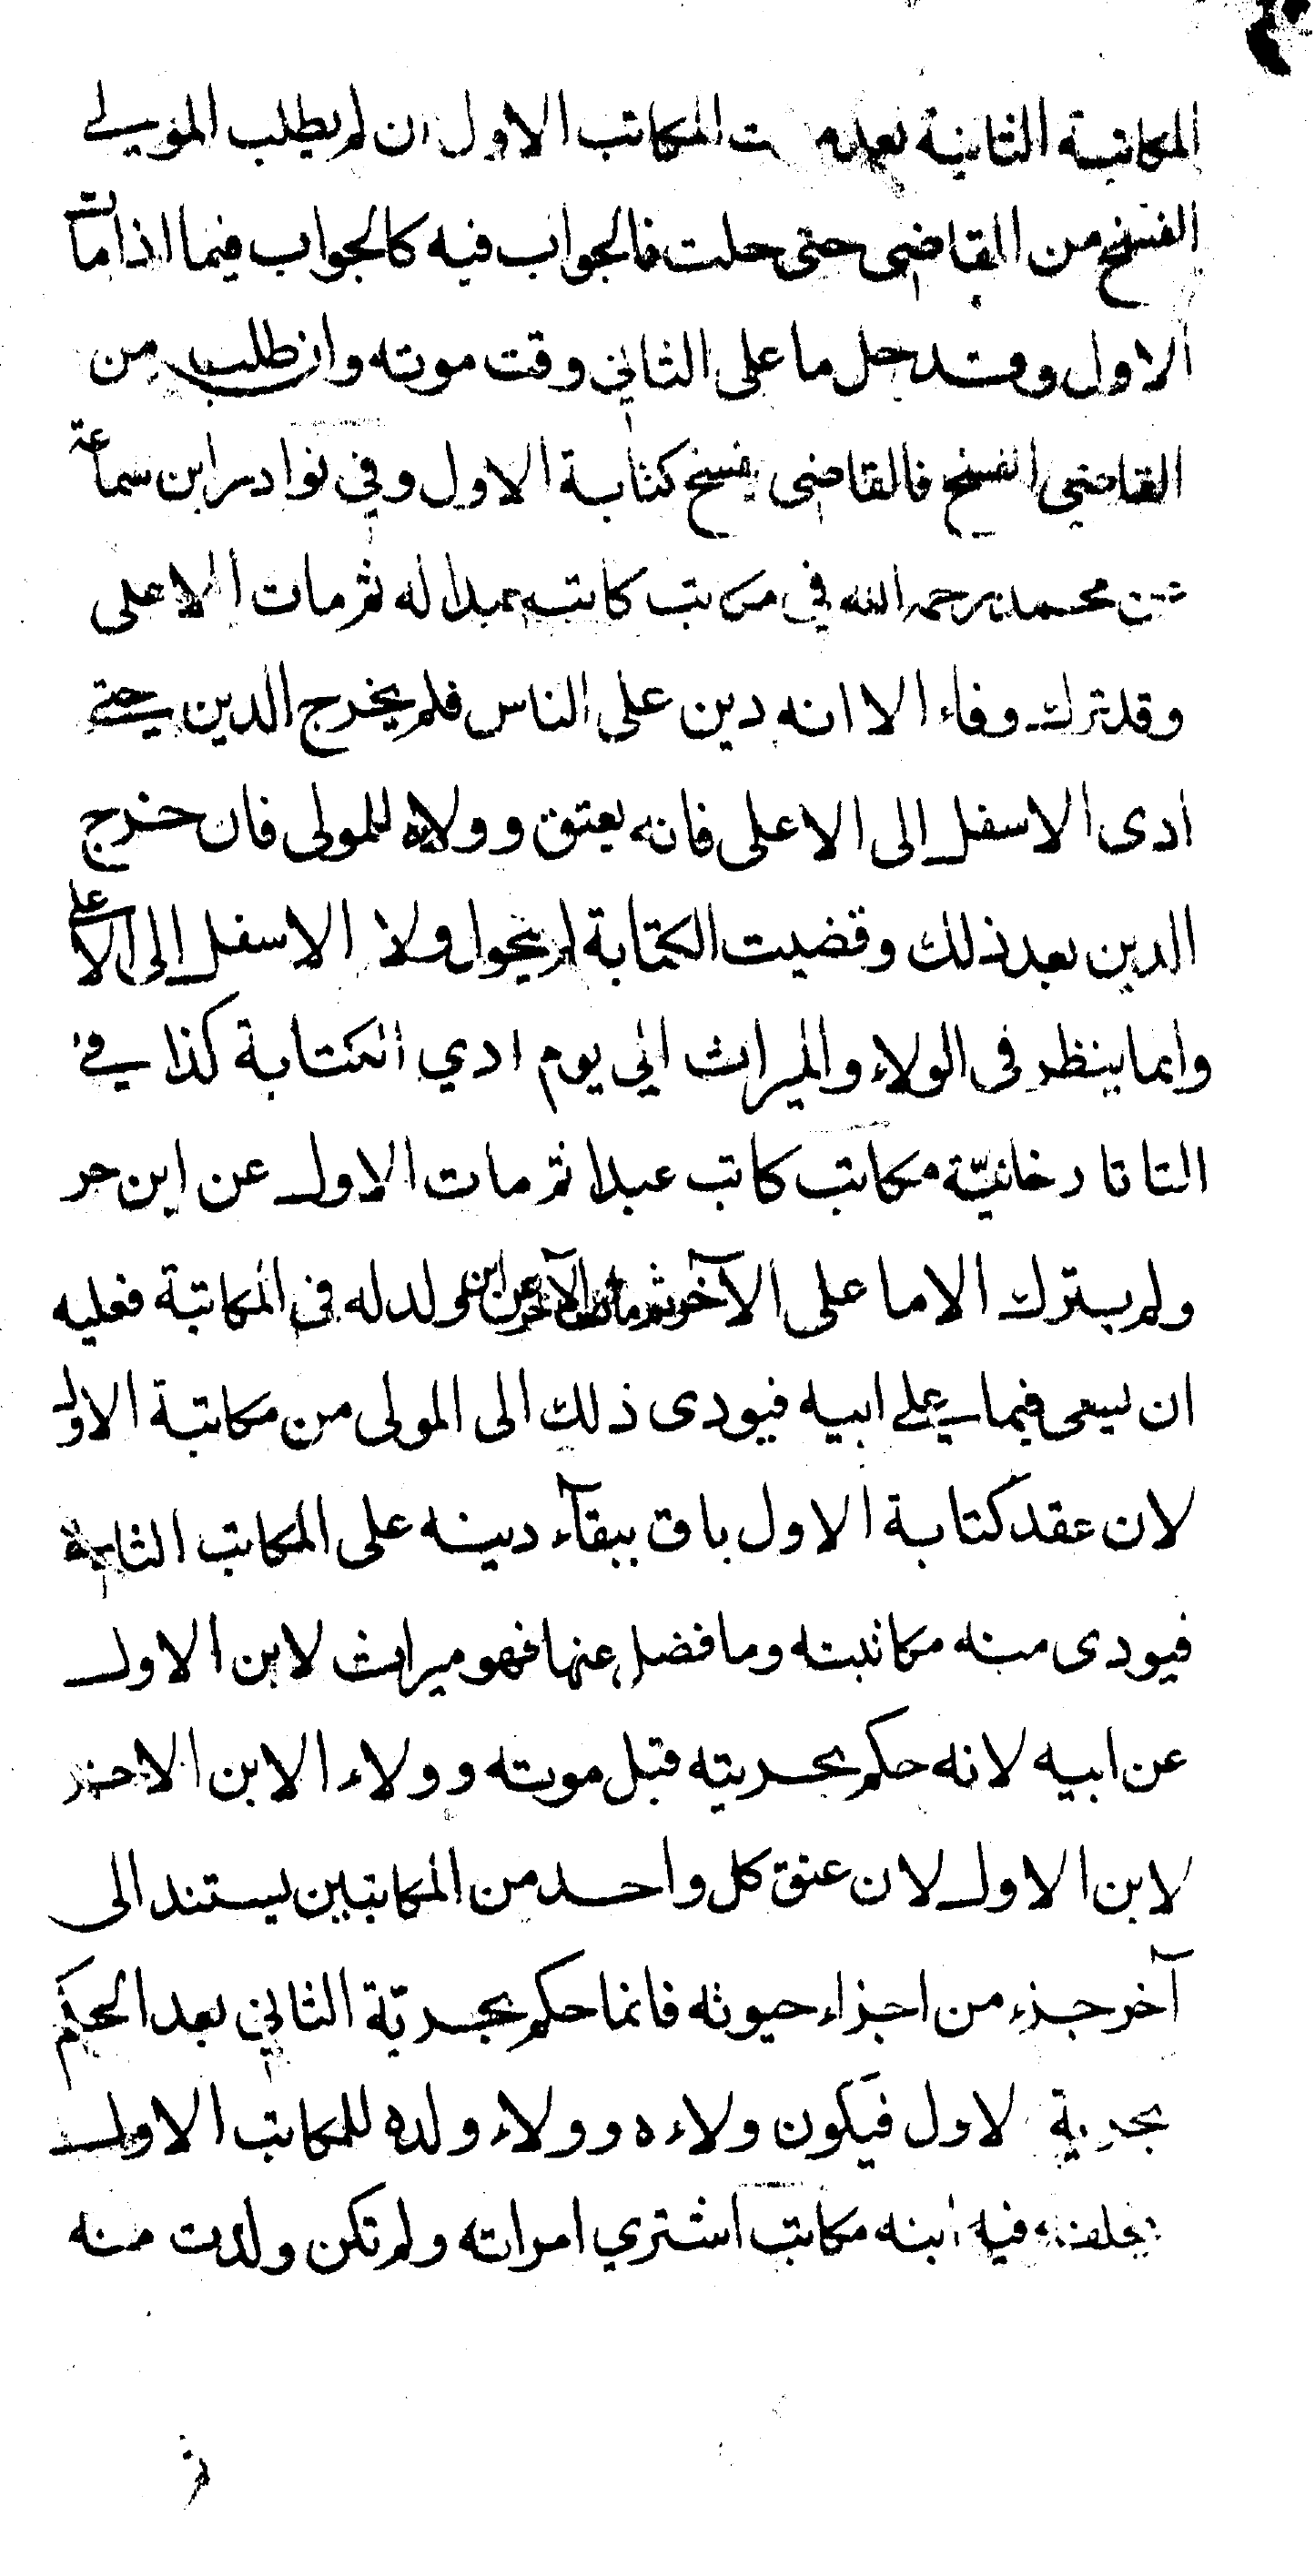 المكاتبة الثانية بعد موت المكاتب الاول ان لم يطلب المولى
الفسخ من القاضى حتى حلت فالجواب فيه كالجواب فيما اذا مات
الاول وقد حل ما على الثاني وقت موته وان طلب من
القاضي الفسخ فالقاضى يفسخ كتابة الاول وفي نوادر ابن سماعة
عن محمد رحمه الله في مكاتب كاتب عبدا له ثم مات الاعلى
وقد ترك وفاء الا انه دين على الناس فلم يخرج الدين حتى
ادى الاسفل الى الاعلى فانه يعتق وولاه للمولى فان خرج
الدين بعد ذلك وقضيت الكتابة لم يحول ولا الاسفل الى الاعلى
وانما ينظر فى الولاء والميراث الي يوم ادي الكتابة كذا في
التاتارخانيّة مكاتب كاتب عبدا ثم مات الاول عن ابن حر
ولم يترك الا ما على الآخر ثم مات الآخر عن ابن ولد له في المكاتبة فعليه
ان يسعى فيما على ابيه فيودى ذلك الى المولى من مكاتبة الاول
لان عقد كتابة الاول باق ببقآء دينه على المكاتب الثاني
فيودى منه مكاتبته وما فضل عنها فهو ميراث لابن الاول
عن ابيه لانه حكم بحريته قبل موته وولاء الابن الاخر
لابن الاول لان عتق كل واحد من المكاتبين يستند الى
آخر جزء من اجزاء حيوته فانما حكم بحريّة الثاني بعد الحكم
بحرية الاول فيكون ولاءه وولاء ولده للمكاتب الاول
يخلفه فيه ابنه مكاتب اشتري امراته ولم تكن ولدت منه